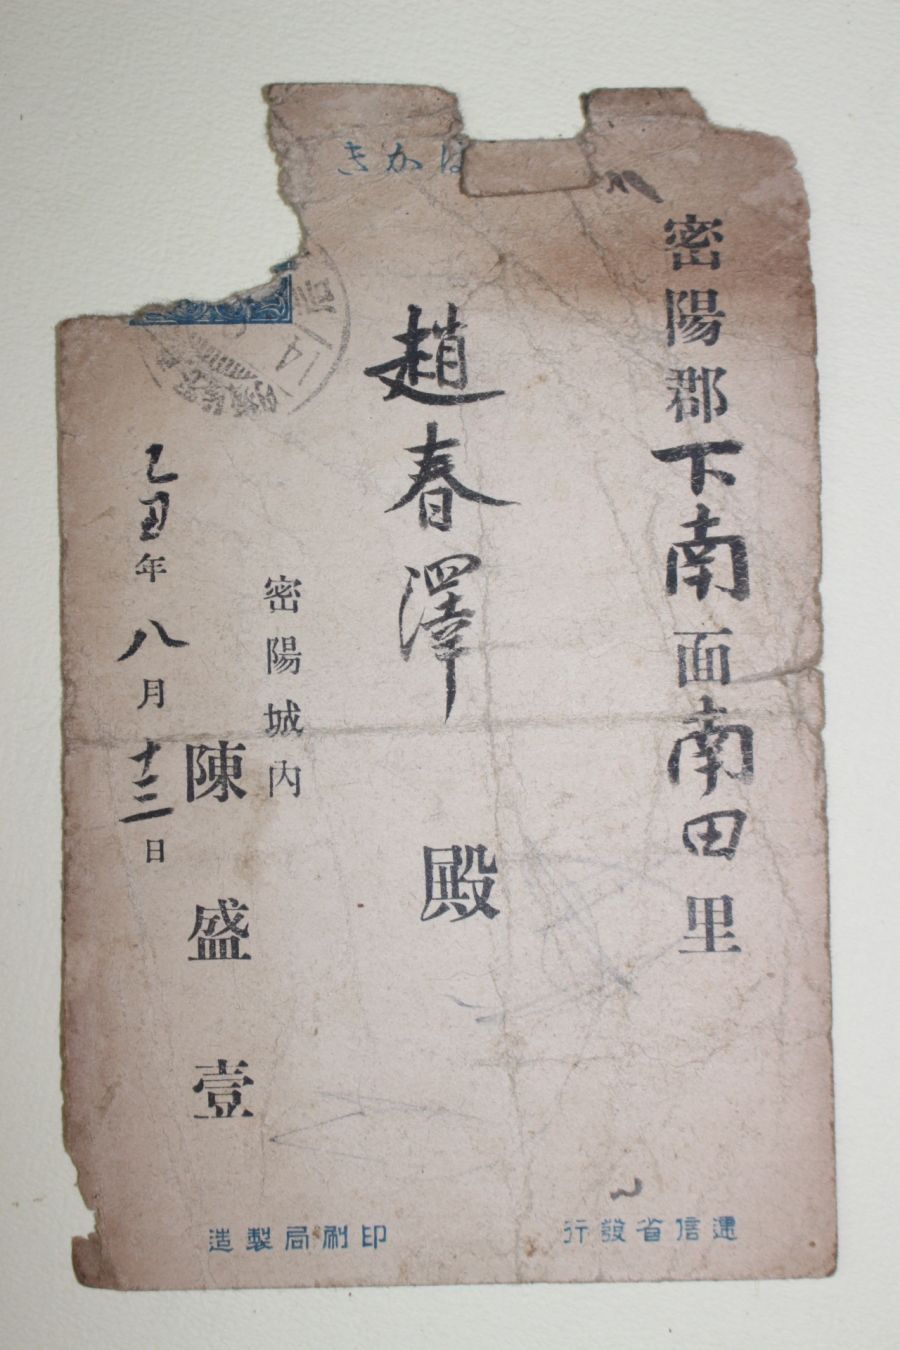 きかは
密陽郡下南面南田里
趙春澤殿
密陽城内
陳盛壹
乙丑年八月十三日
14
造製局刷印
行發省信遞